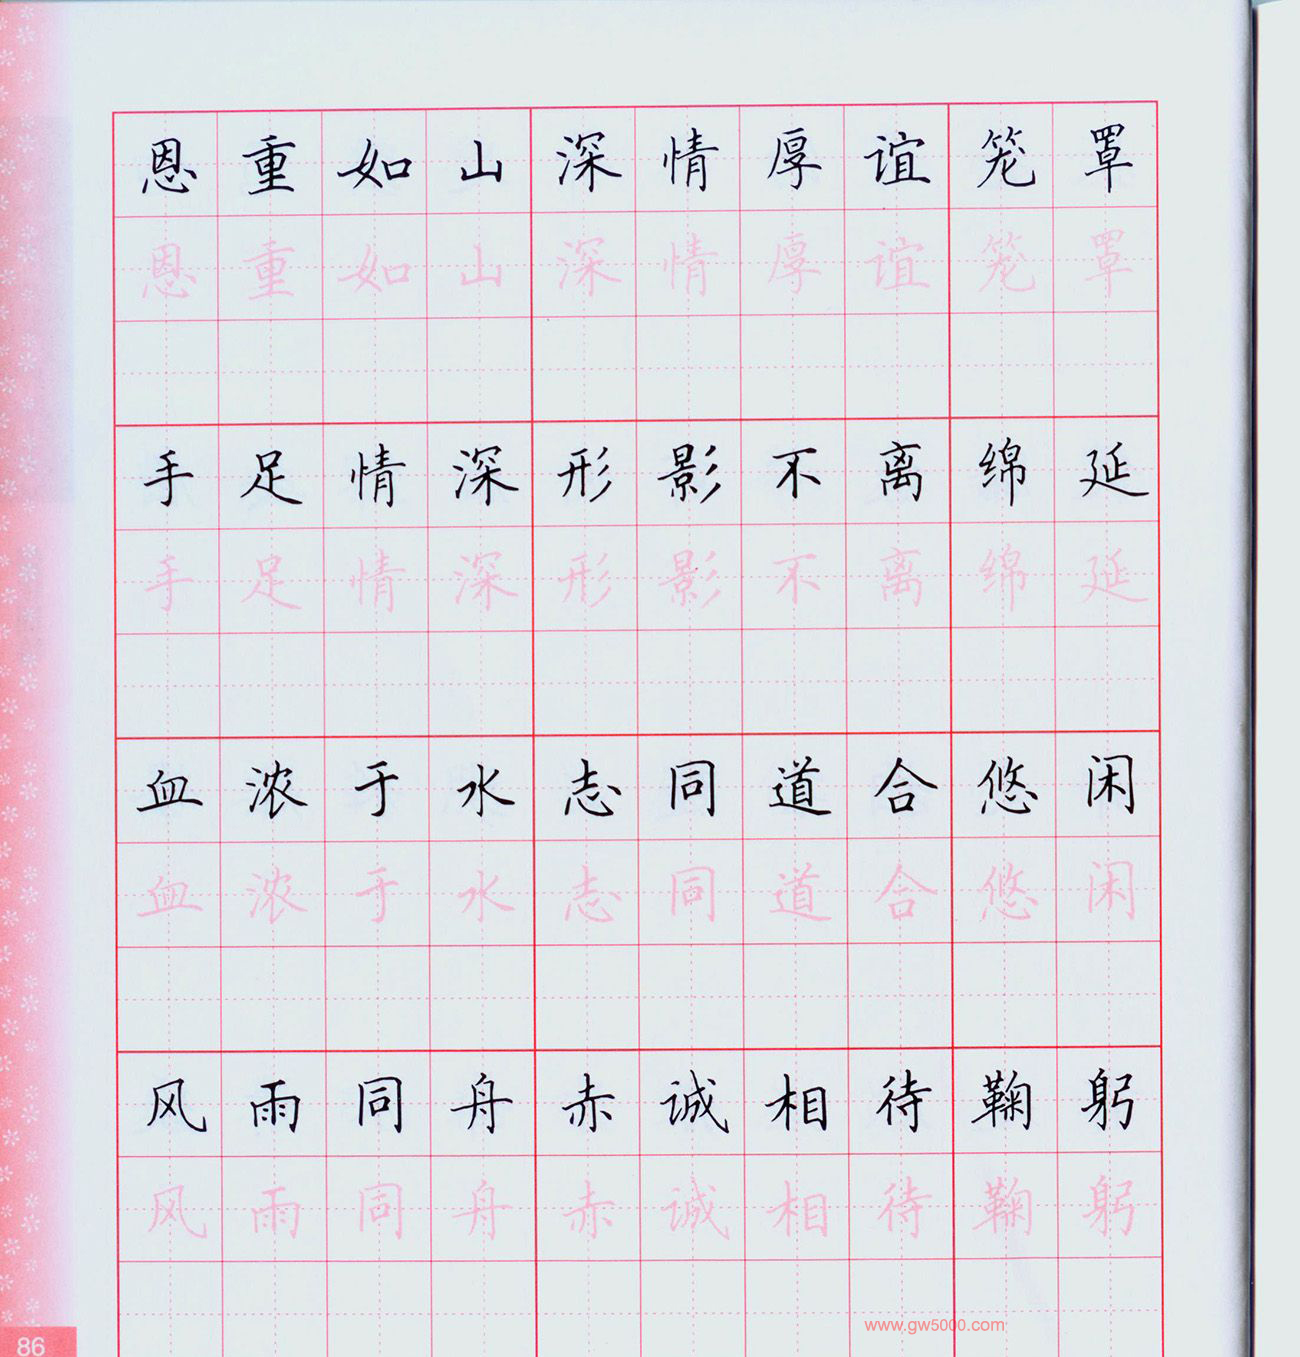 恩重如山深情厚谊笼罩
恩重如山深情厚谊笼罩
手足情深形影不离绵延
手足情深形影不离绵延
血浓于水志同道合悠闲
血浓于水志同道合悠闲
风雨同舟赤诚相待鞠躬
风雨同舟赤诚相待鞠躬
www.gw5000.com
86